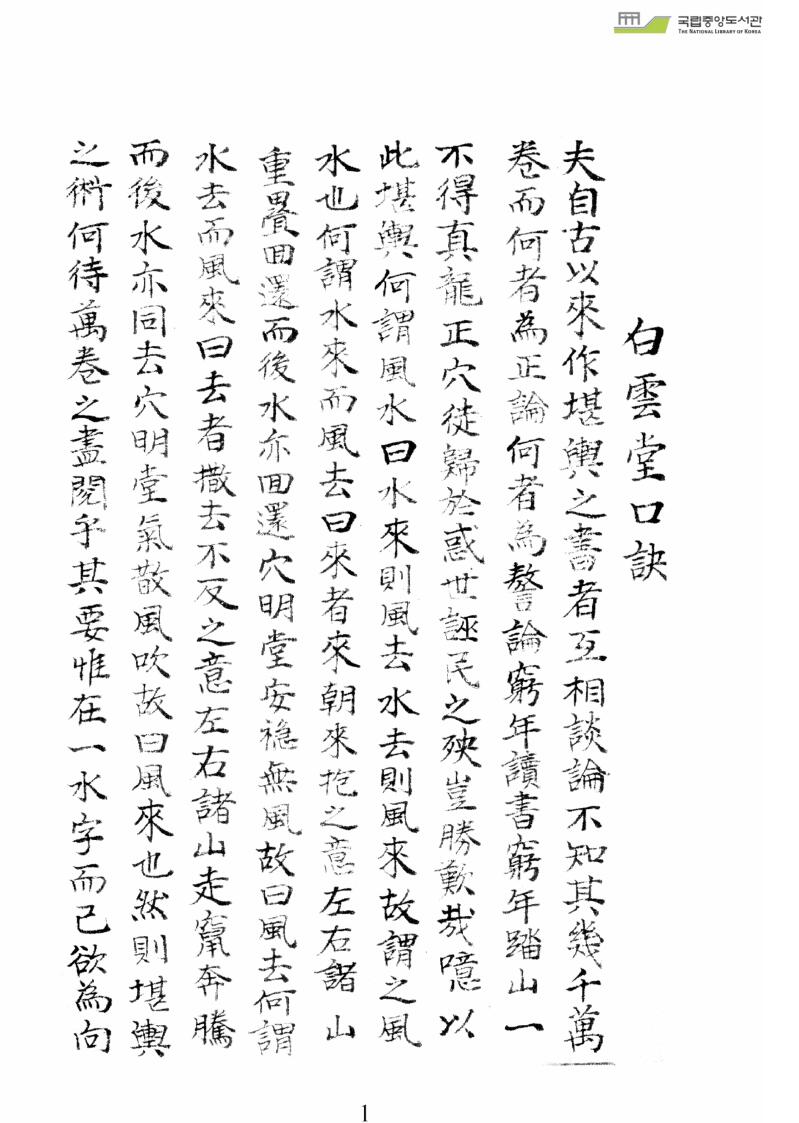 국립중앙도서관
THE NATIONAL LIBRARY OF KOREA
白雲堂口訣
夫自古以來作堪輿之書者互相談論不知其幾千萬
卷而何者為正論何者為謷論窮年讀書窮年踏山一
不得真龍正穴徒歸於惑世誣民之殃豈勝歎哉噫以
此堪輿何謂風水曰水來則風去水去則風來故謂之風
水也何謂水來而風去曰來者來朝來抱之意左右諸山
重疊回還而後水亦回還穴明堂安穩無風故曰風去何謂
水去而風來曰去者撒去不反之意左右諸山走竄奔騰
而後水亦同去穴明堂氣散風吹故曰風來也然則堪輿
之術何待萬卷之盡閱乎其要惟在一水字而已欲為向
1